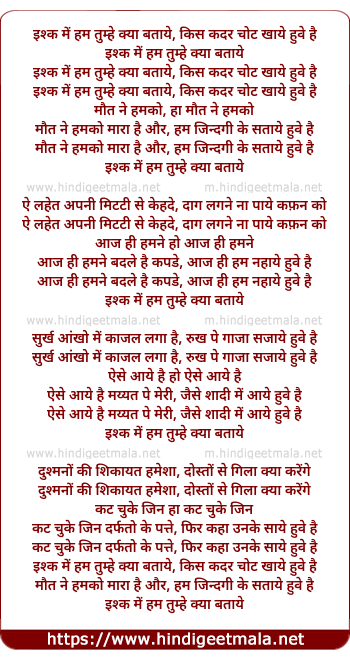 इश्क में हम तुम्हे क्या बताये, किस कदर चोट खाये हुवे है
इश्क में हम तुम्हे क्या बताये
इश्क में हम तुम्हे क्या बताये, किस कदर चोट खाये हुवे है
इश्क में हम तुम्हे क्या बताये, किस कदर चोट खाये हुवे है
मौत ने हमको, हा मौत ने हमको
मौत ने हमको मारा है और, हम जिन्दगी के सताये हुवे है
मौत ने हमको मारा है और, हम जिन्दगी के सताये हुवे है
इश्क में हम तुम्हे क्या बताये
www.hindigeetmala.net m.hindigeetmala.net
ऐ लहेत अपनी मिटटी से केहदे, दाग लगने ना पाये कफ़न को
ऐ लहेत अपनी मिटटी से केहदे, दाग लगने ना पाये कफ़न को
आज ही हमने हो आज ही हमने
आज ही हमने बदले है कपडे, आज ही हम नहाये हुवे है
आज ही हमने बदले है कपडे, आज ही हम नहाये हुवे है
इश्क में हम तुम्हे क्या बताये
www.hindigeetmala.net m.hindigeetmala.net
सुर्ख आंखो में काजल लगा है, रुख पे गाजा सजाये हुवे है
सुर्ख आंखो में काजल लगा है, रुख पे गाजा सजाये हुवे है
ऐसे आये है हो ऐसे आये है
ऐसे आये है मय्यत पे मेरी, जैसे शादी में आये हुवे है
ऐसे आये है मय्यत पे मेरी, जैसे शादी में आये हुवे है
इश्क में हम तुम्हे क्या बताये
www.hindigeetmala.net m.hindigeetmala.net
दुश्मनों की शिकायत हमेशा, दोस्तों से गिला क्या करेंगे
दुश्मनों की शिकायत हमेशा, दोस्तों से गिला क्या करेंगे
कट चुके जिन हा कट चुके जिन
कट चुके जिन दर्फतो के पत्ते, फिर कहा उनके साये हुवे है
कट चुके जिन दर्फतो के पत्ते, फिर कहा उनके साये हुवे है
इश्क में हम तुम्हे क्या बताये, किस कदर चोट खाये हुवे है
मौत ने हमको मारा है और, हम जिन्दगी के सताये हुवे है
इश्क में हम तुम्हे क्या बताये
https://www.hindigeetmala.net